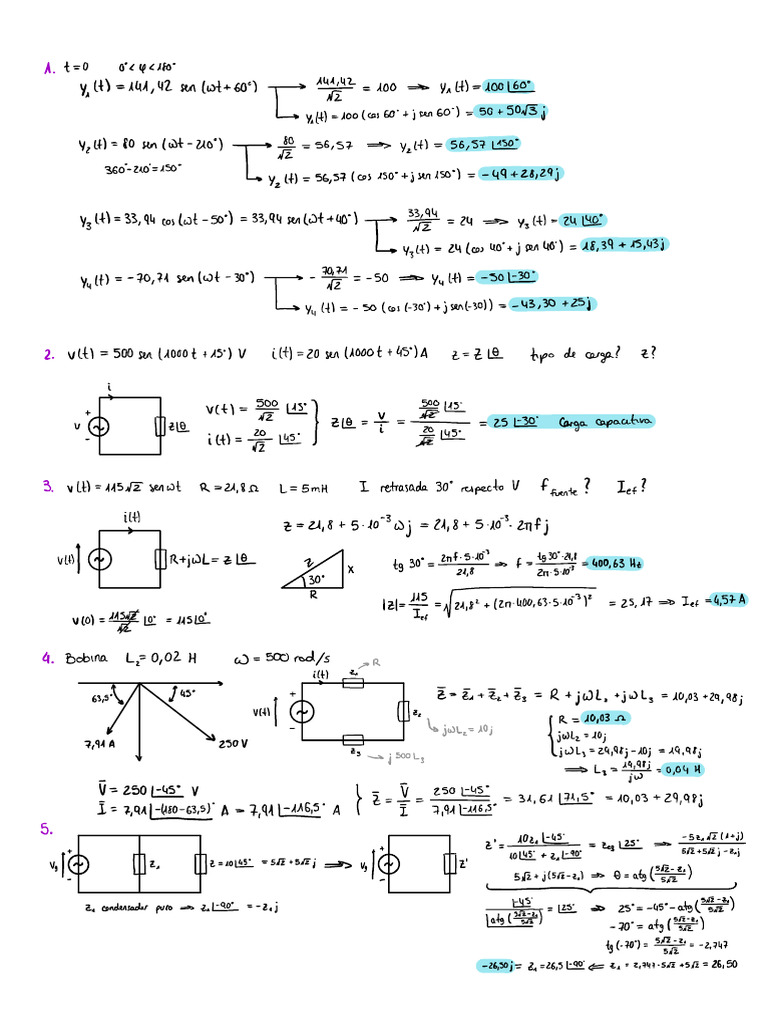 1. t=0 0°<φ<180°
y₁(t) = 141,42 sen (ωt+60°) → 141,42/√2 = 100 ⟹ y₁(t) = 100∠60°
→ y₁(t) = 100 (cos 60° + j sen 60°) = 50 + 50√3 j
y₂(t) = 80 sen (ωt - 210°) → 80/√2 = 56,57 ⟹ y₂(t) = 56,57∠150°
360°-210°=150°
→ y₂(t) = 56,57 (cos 150° + j sen 150°) = -49 + 28,29j
y₃(t) = 33,94 cos (ωt - 50°) = 33,94 sen (ωt + 40°) → 33,94/√2 = 24 ⟹ y₃(t) = 24∠40°
→ y₃(t) = 24 (cos 40° + j sen 40°) = 18,39 + 15,43j
y₄(t) = -70,71 sen (ωt - 30°) → -70,71/√2 = -50 ⟹ y₄(t) = -50∠-30°
→ y₄(t) = -50 (cos (-30°) + j sen(-30)) = -43,30 + 25j
2. v(t) = 500 sen (1000t + 15°) V i(t) = 20 sen (1000t + 45°) A z = Z∠θ tipo de carga? Z?
i
+
v
-
Z∠θ
v(t) = 500/√2 ∠15°
i(t) = 20/√2 ∠45°
Z∠θ = v/i = (500/√2 ∠15°)/(20/√2 ∠45°) = 25∠-30° Carga capacitiva
3. v(t) = 115√2 sen ωt R = 21,8 Ω L = 5mH I retrasada 30° respecto V f fuente? I ef?
i(t)
v(t)
R+jωL = Z∠θ
z = 21,8 + 5·10⁻³ ωj = 21,8 + 5·10⁻³·2πfj
Z
30°
R
X
tg 30° = 2πf·5·10⁻³/21,8 ⟹ f = tg30°·21,8/2π·5·10⁻³ = 400,63 Hz
|z| = 115/I ef = √(21,8² + (2π·400,63·5·10⁻³)²) = 25,17 ⟹ I ef = 4,57 A
v(0) = 115√2/√2 ∠0° = 115∠0°
4. Bobina L₂ = 0,02 H ω = 500 rad/s
63,5°
45°
7,91 A
250 V
i(t)
z₁
R
+
v(t)
-
z₂
jωL₂ = 10j
z₃
j 500 L₃
z̄ = z̄₁ + z̄₂ + z̄₃ = R + jωL₂ + jωL₃ = 10,03 + 29,98j
R = 10,03 Ω
jωL₂ = 10j
jωL₃ = 29,98j - 10j = 19,98j
⟹ L₃ = 19,98j/jω = 0,04 H
V̄ = 250∠-45° V
Ī = 7,91∠-(180-63,5)° A = 7,91∠-116,5° A
z̄ = V̄/Ī = 250∠-45°/7,91∠-116,5° = 31,61∠71,5° = 10,03 + 29,98j
5.
+
Vg
-
Z₁
Z = 10∠45° = 5√2 + 5√2 j ⟹
+
Vg
-
Z'
z₁ condensador puro ⟹ z₁∠-90° = -z₁j
z' = 10z₁∠-45°/(10∠45° + z₁∠-90°) = z eq∠25° ⟹ -5z₁√2 (1+j)/(5√2+5√2j-z₁j)
5√2 + j(5√2-z₁) ⟹ θ = atg((5√2-z₁)/5√2)
∠-45°/∠atg((5√2-z₁)/5√2) = ∠25° ⟹ 25° = -45° - atg((5√2-z₁)/5√2)
-70° = atg((5√2-z₁)/5√2)
tg(-70°) = (5√2-z₁)/5√2 = -2,747
-26,50j = z₁ = 26,5∠-90° ⟸ z₁ = 2,747·5√2 + 5√2 = 26,50